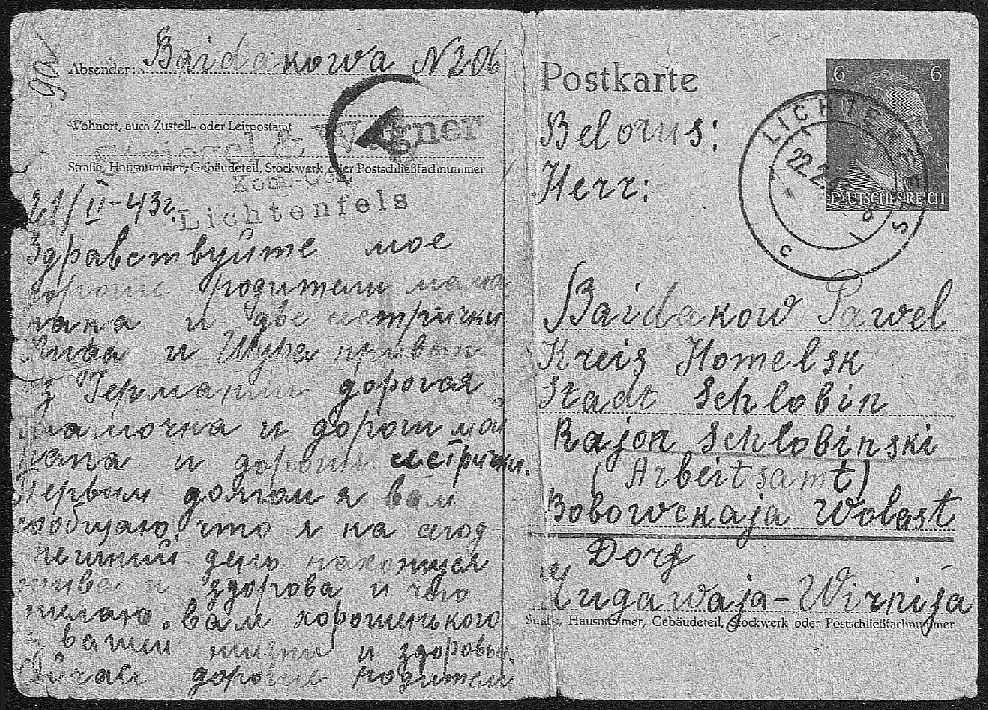 Absender: Baidakowa N 206
Wohnort, auch Zustell- oder Leitpostamt
Wagner
Straße, Hausnummer, Gebäudeteil, Stockwerk oder Postschließfachnummer
Lichtenfels
21/II-43г.
Здравствуйте мое
дорогие родители мама
папа и две сестрички
и Шура привет
з Германии дорогая
мамочка и дороги мой
папа и дорогие сестрички.
Первым долгом я вам
сообщаю, что я на сегод
нешний день нахожуся
жива и здорова и чего
желаю вам хорошенького
в вашей жизни и здоровьи.
дорогие родители
Postkarte
6 6
DEUTSCHES REICH
LICHTENFELS
22.2.
c
Belorus:
Herr:
Baidakow Pawel
Kreis Homelsk
Stadt Schlobin
Rajon Schlobinski
(Arbeitsamt)
Bobowskaja Wolast
Dorf
Lugawaja-Wirnija
Straße, Hausnummer, Gebäudeteil, Stockwerk oder Postschließfachnummer